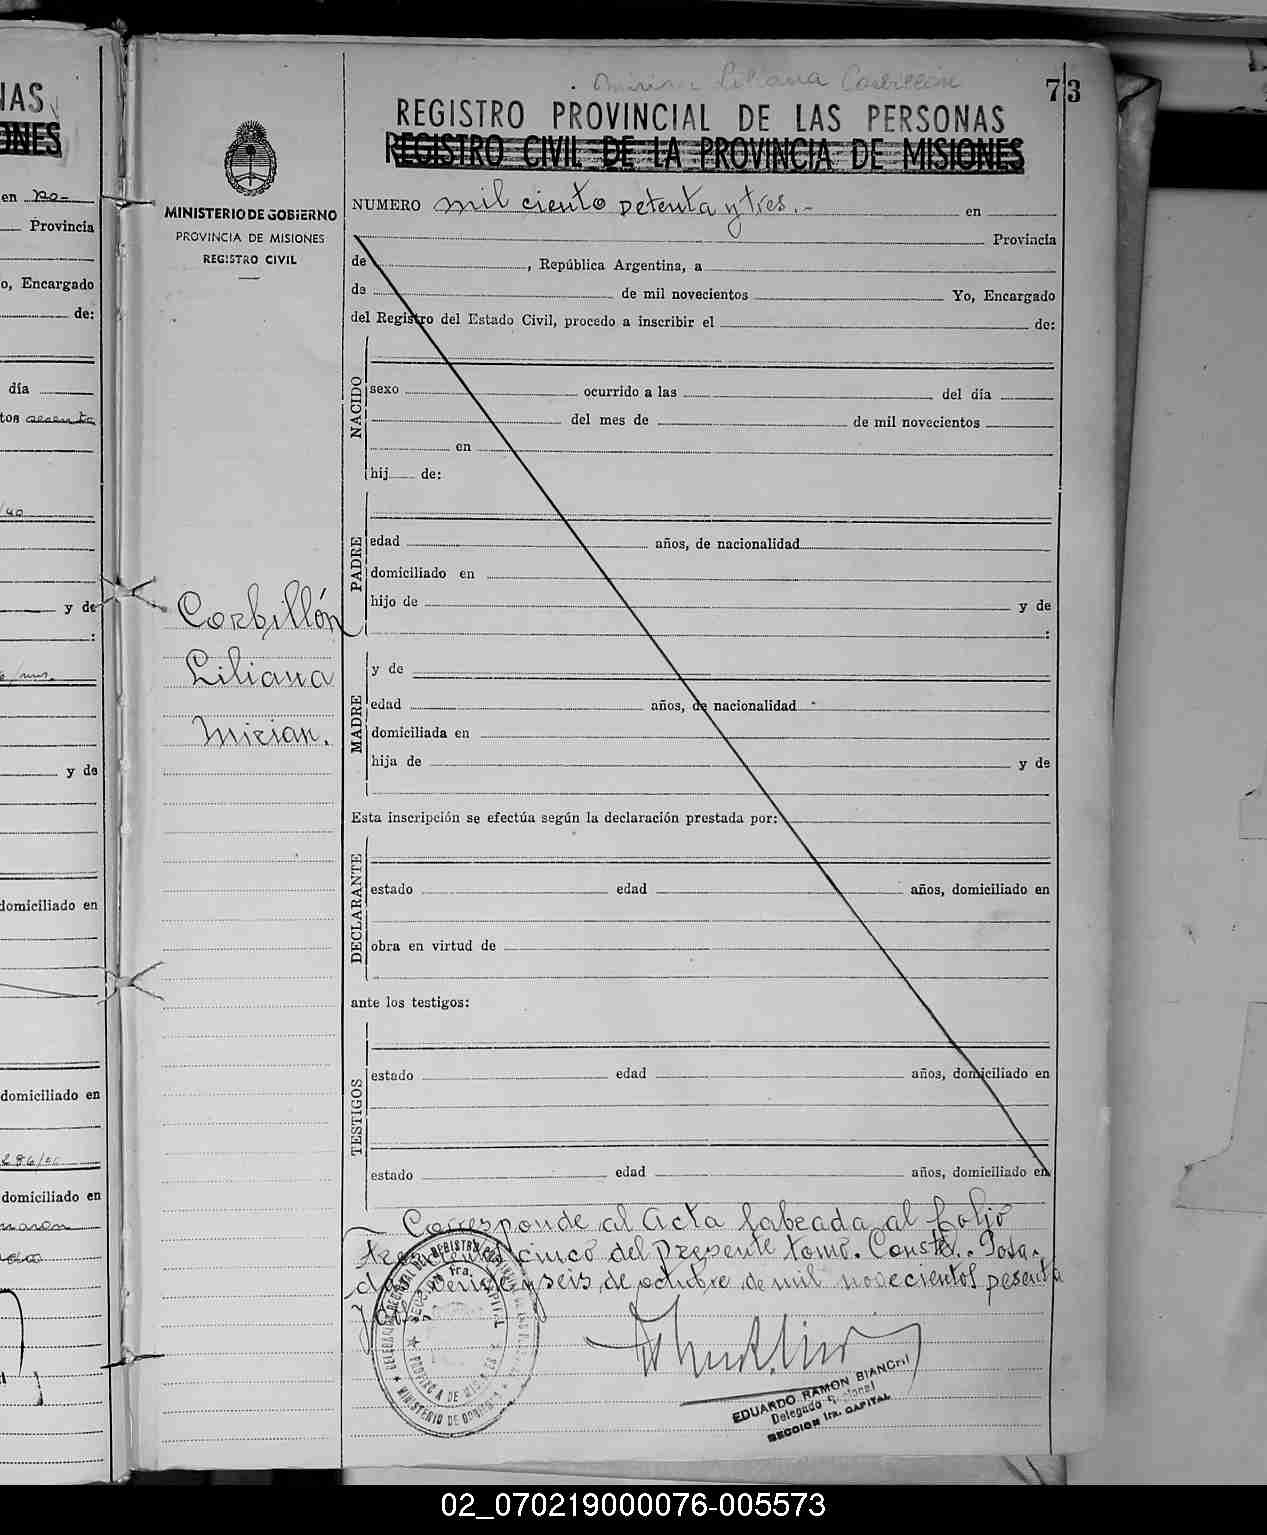 Miriam Liliana Corbillón
73
REGISTRO PROVINCIAL DE LAS PERSONAS
REGISTRO CIVIL DE LA PROVINCIA DE MISIONES
MINISTERIO DE GOBIERNO
PROVINCIA DE MISIONES
REGISTRO CIVIL
NUMERO mil ciento setenta y tres.- en
Provincia
de , República Argentina, a
de de mil novecientos Yo, Encargado
del Registro del Estado Civil, procedo a inscribir el de:
NACIDO
sexo ocurrido a las del día
del mes de de mil novecientos
en
hij de:
PADRE
edad años, de nacionalidad
domiciliado en
hijo de y de
:
Corbillón
Liliana
Mirian.
MADRE
y de
edad años, de nacionalidad
domiciliada en
hija de y de
Esta inscripción se efectúa según la declaración prestada por:
DECLARANTE
estado edad años, domiciliado en
obra en virtud de
ante los testigos:
TESTIGOS
estado edad años, domiciliado en
estado edad años, domiciliado en
Corresponde al Acta labrada al folio
cinco del presente tomo. Conste.. Posa-
das y seis de octubre de mil novecientos sesenta
EDUARDO RAMON BIANCHI
Delegado
SECCION 1ra. CAPITAL
IAS
ONES
en
Provincia
o, Encargado
de:
día
tos
y de
:
y de
domiciliado en
domiciliado en
domiciliado en
02_070219000076-005573